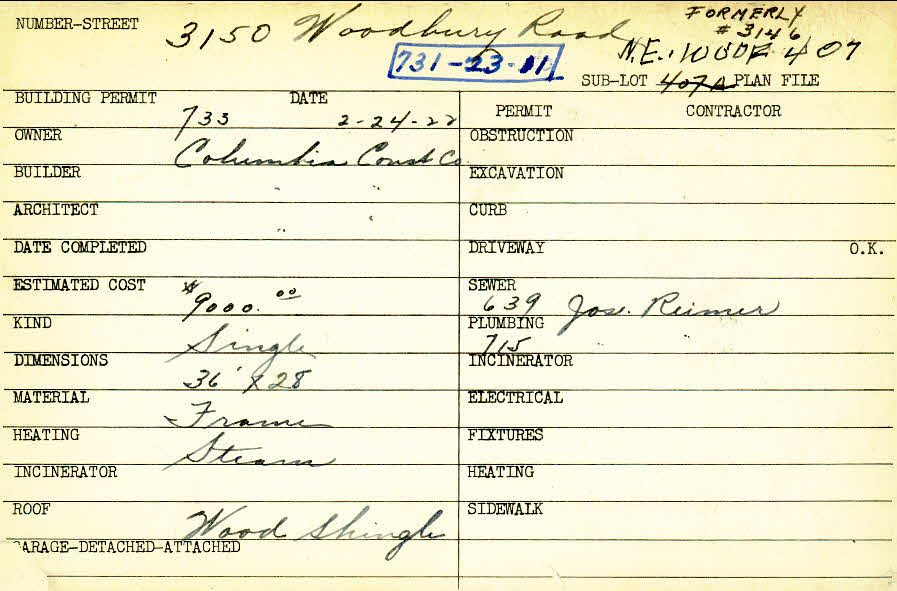 FORMERLY
NUMBER-STREET 3150 Woodbury Road # 3146
731-23-11 N.E. 100' OF 407
SUB-LOT 407A PLAN FILE
BUILDING PERMIT 733 DATE 2-24-22
PERMIT CONTRACTOR
OWNER Columbia Const Co.
OBSTRUCTION
BUILDER " "
EXCAVATION
ARCHITECT " "
CURB
DATE COMPLETED
DRIVEWAY O.K.
ESTIMATED COST $9000.00
SEWER 639 Jos. Reimer
KIND Single
PLUMBING 715 "
DIMENSIONS 36' x 28
INCINERATOR
MATERIAL Frame
ELECTRICAL
HEATING Steam
FIXTURES
INCINERATOR
HEATING
ROOF Wood Shingle
SIDEWALK
GARAGE-DETACHED-ATTACHED